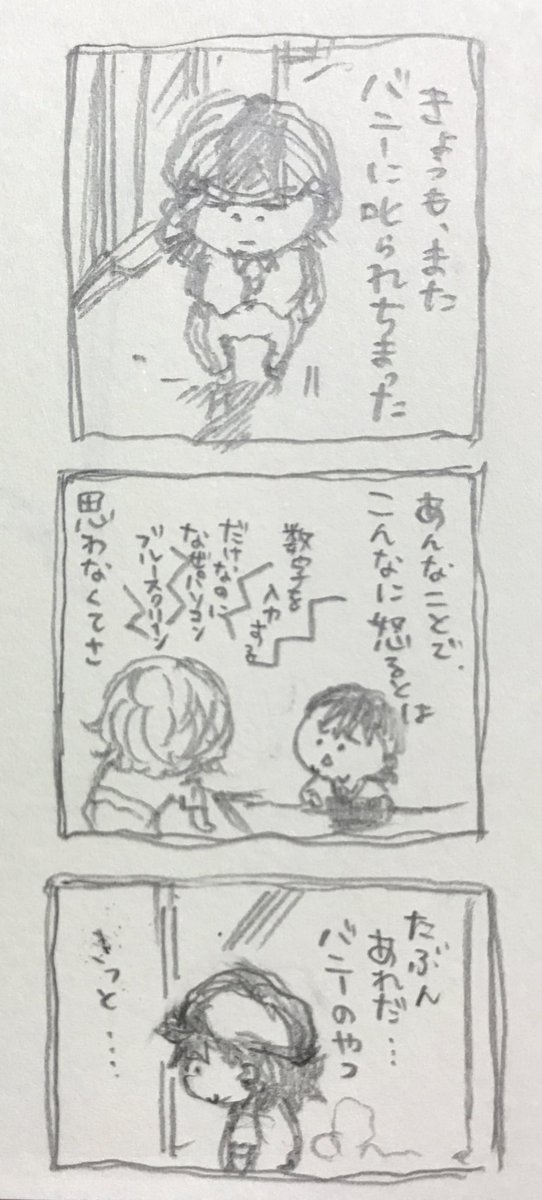 きょうも、また
バニーに叱られちまった
あんなことで、
こんなに怒るとは
数字を
入力
する
だけなのに
なぜパソコン
ブルースクリーン
思わなくてさ
たぶん
あれだ…
バニーのやつ
きっと….